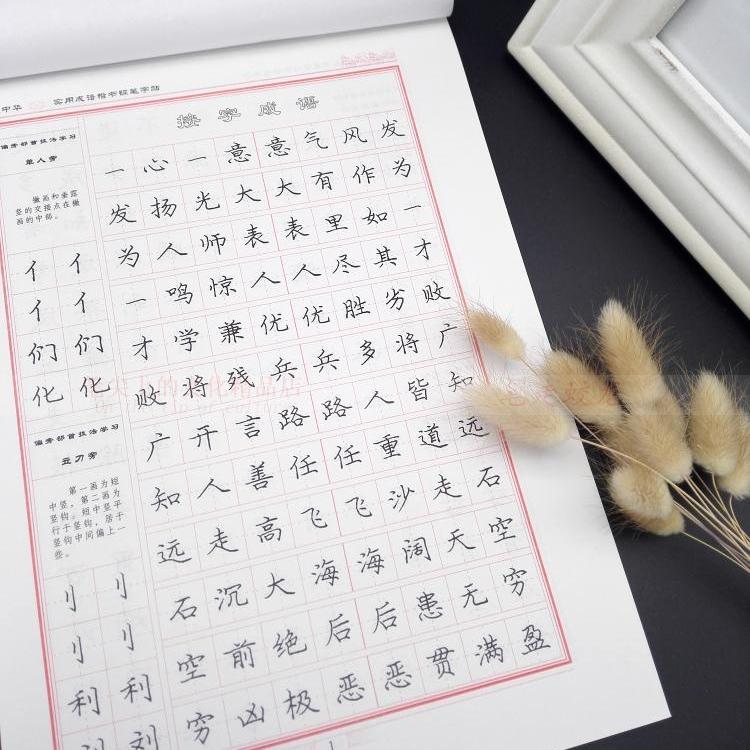 中华
实用成语楷书钢笔字帖
接字成语
偏旁部首技法学习
单人旁
撇画和垂露
竖的交接点在撇
画的中部。
亻 亻
亻 亻
们 们
化 化
偏旁部首技法学习
立刀旁
第一画为短
中竖，第二画为
竖钩。短中竖平
行于竖钩，居于
竖钩中间偏上一
些。
刂 刂
刂 刂
利 利
刘
一心一意意气风发
发扬光大大有作为
为人师表表里如一
一鸣惊人人尽其才
才学兼优优胜劣败
败将残兵兵多将广
广开言路路人皆知
知人善任任重道远
远走高飞飞沙走石
石沉大海海阔天空
空前绝后后患无穷
穷凶极恶恶贯满盈
1